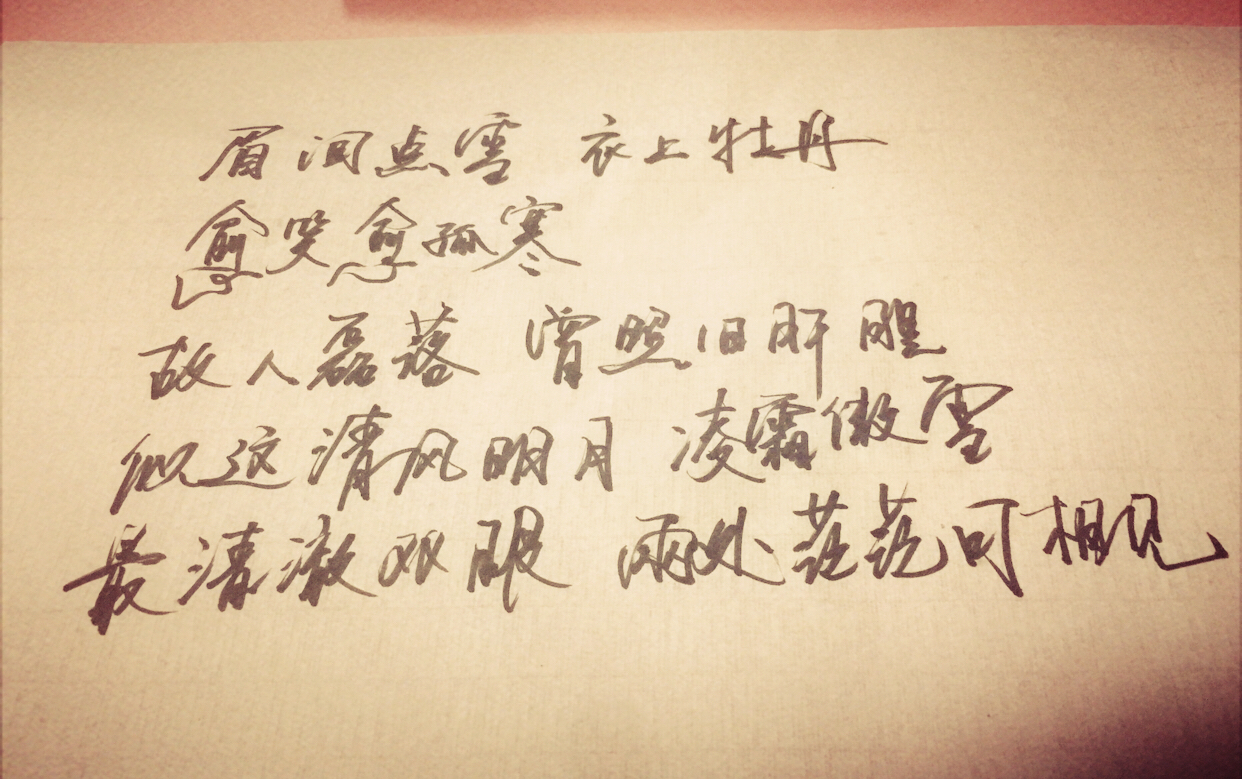 眉间点雪 衣上牡丹
愈哭愈孤寒
故人磊落 曾照旧肝胆
似这清风明月 凌霜傲雪
最清澈双眼 两处茫茫可相见